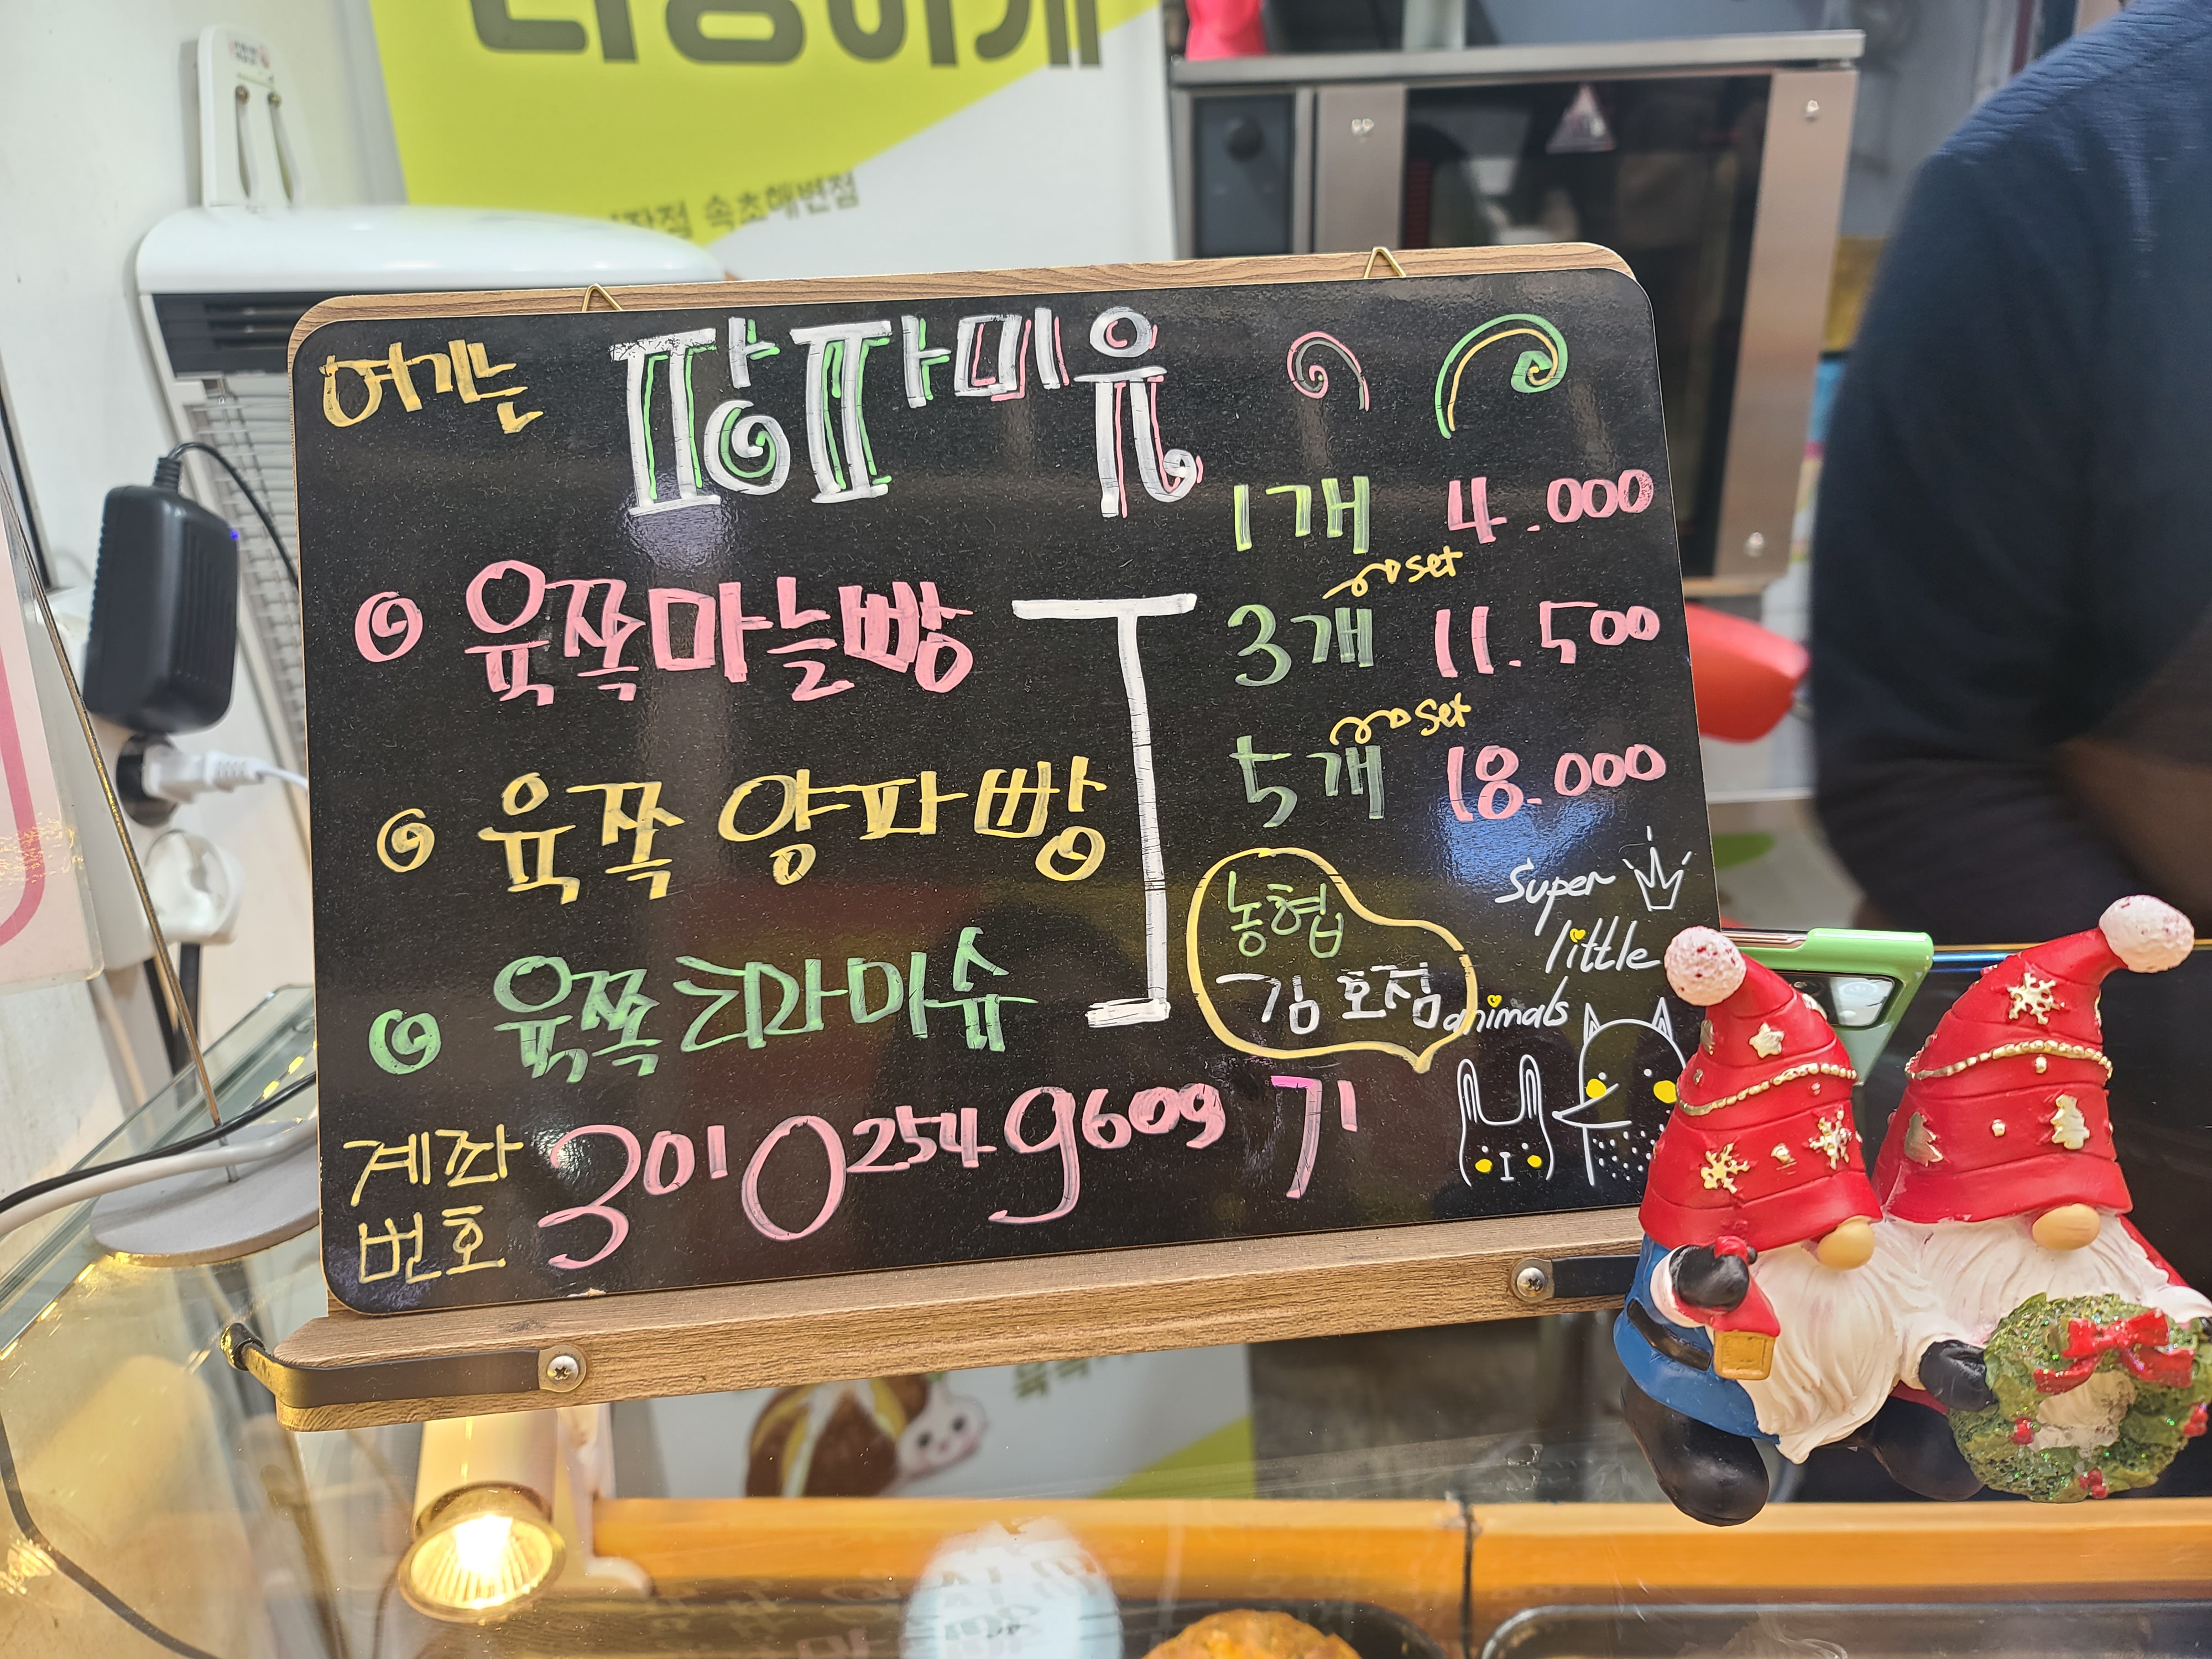 속초해변점
여기는 팡파미유
육쪽마늘빵
육쪽 양파빵
육쪽티라미슈
1개 4.000
set
3개 11.500
set
5개 18.000
농협
김호정
Super
little
animals
계좌
번호
301 0254 9609 71